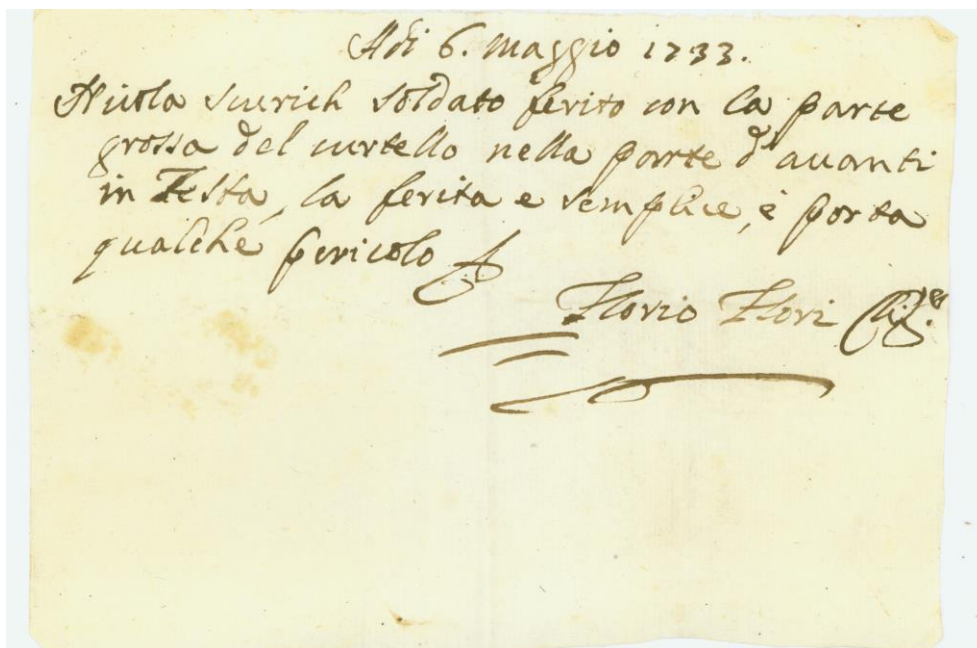 Adi 6. Maggio 1733.
Nicola scurich soldato ferito con la parte
grossa del cortello nella parte d'auanti
in Testa, la ferita e semplice, è porta
qualche pericolo
Florio Flori